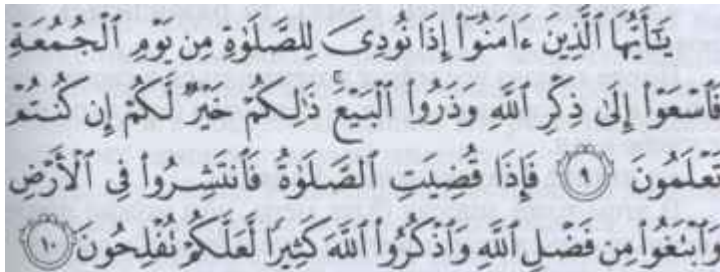 يَٰٓأَيُّهَا ٱلَّذِينَ ءَامَنُوٓا۟ إِذَا نُودِىَ لِلصَّلَوٰةِ مِن يَوْمِ ٱلْجُمُعَةِ
فَٱسْعَوْا۟ إِلَىٰ ذِكْرِ ٱللَّهِ وَذَرُوا۟ ٱلْبَيْعَ ۚ ذَٰلِكُمْ خَيْرٌ لَّكُمْ إِن كُنتُمْ
تَعْلَمُونَ ٩ فَإِذَا قُضِيَتِ ٱلصَّلَوٰةُ فَٱنتَشِرُوا۟ فِى ٱلْأَرْضِ
وَٱبْتَغُوا۟ مِن فَضْلِ ٱللَّهِ وَٱذْكُرُوا۟ ٱللَّهَ كَثِيرًا لَّعَلَّكُمْ تُفْلِحُونَ ١٠